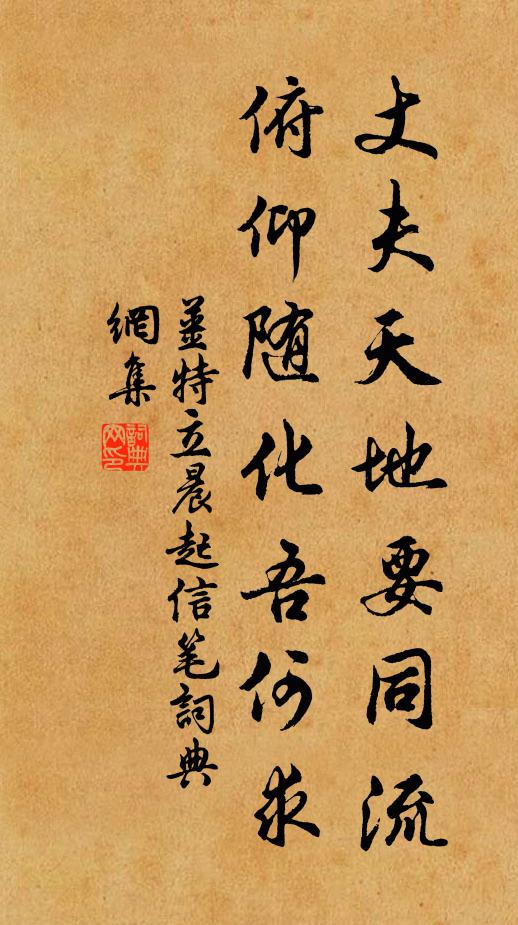 丈夫天地要同流
俯仰随化吾何求
姜特立晨起信笔詞典
網集
詞典
网印